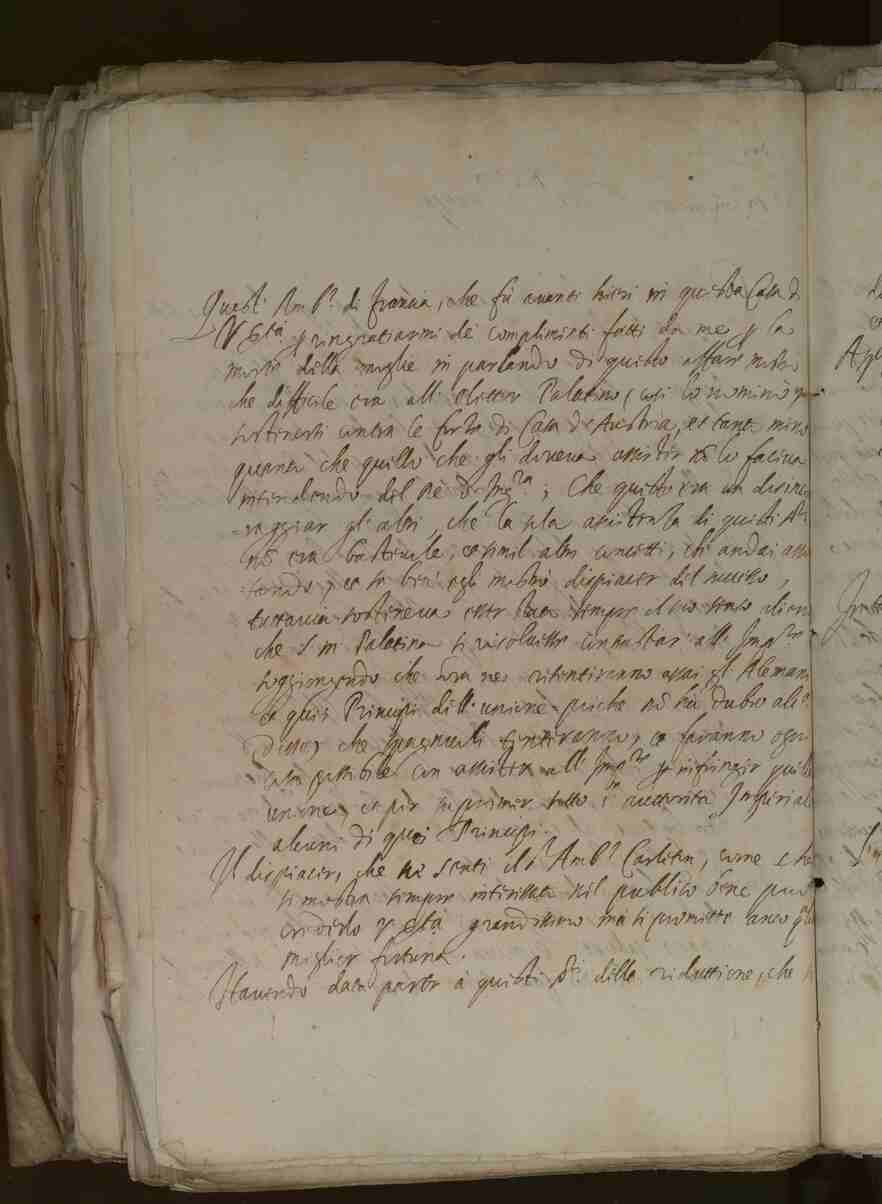 Quest' Amb.r di Francia, che fù avanti hieri in questa Casa di
V. Ser.tà p ringratiarmi de' complimenti fatti da me p la
morte della moglie in parlando di questo affare mostrò
che difficile era all' Elettor Palatino, così lo nominò
sostenersi contra le forze di Casa d'Austria, et tanto meno
quanto che quello che gli doveva assister nõ lo faceva
intendendo del Rè d'Ing.ra; Che questo era un disinco-
raggiar gl'altri, che la sola assistenza di questi SS.ri
nõ era bastevole, et simil altri concetti, ch' andai ascol-
tando, et se ben egli mostrò dispiacer del successo,
tuttavia sosteneva esser stato sempre il suo senso
che il Palatino si risolvesse
soggiongendo che hora ne risentiranno assai gl'Alemani
et quei Principi dell'unione, poiche nõ hà dubio alc.o
disse, che Spagnuoli tenteranno, et faranno ogni
cosa possibile con assister all' Imp.re p infringer quella
unione, et per supprimer sotto l'auttorità Imperial
alcuni di quei Principi.
Il dispiacer, che ne senti il S.r Amb.r Carleton, come che
si mostra sempre interessato nel publico bene può
crederlo V. Ser.tà grandissimo mà si promette anco
miglior fortuna.
Havendo data parte à questi SS.ri della riduttione, che